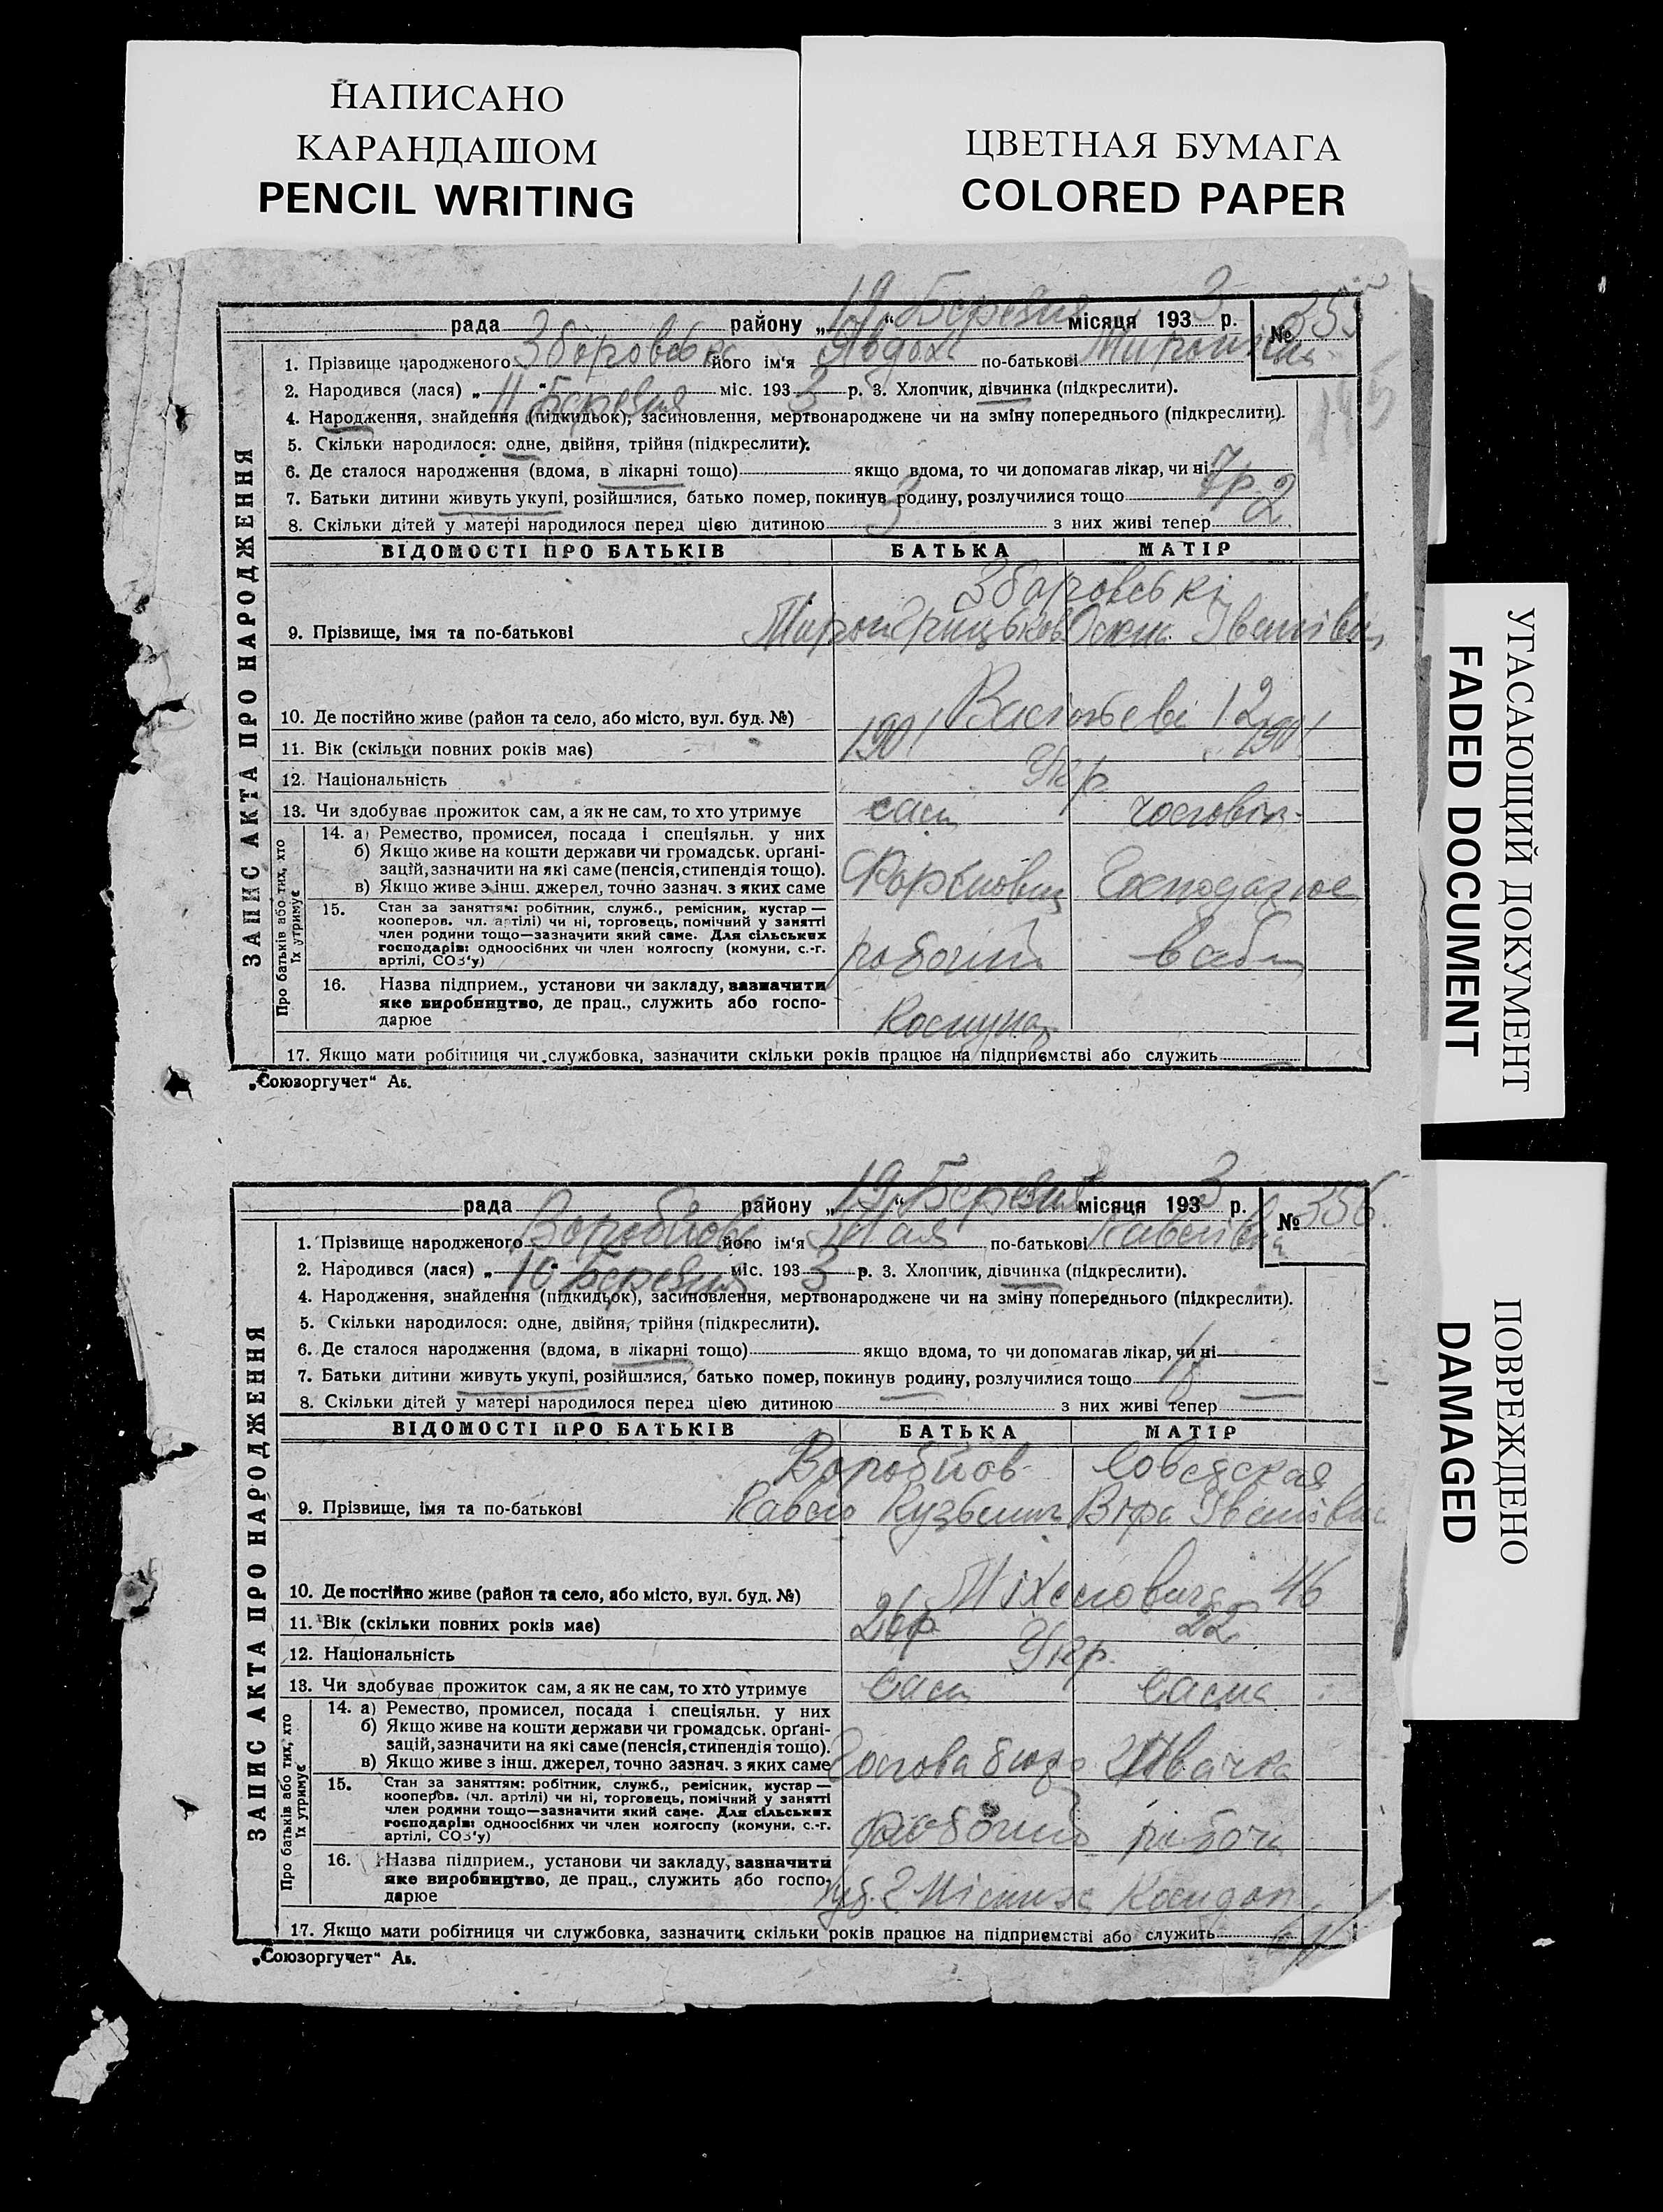 НАПИСАНО
КАРАНДАШОМ
PENCIL WRITING
ЦВЕТНАЯ БУМАГА
COLORED PAPER
УГАСАЮЩИЙ ДОКУМЕНТ
FADED DOCUMENT
ПОВРЕЖДЕНО
DAMAGED
ЗАПИС АКТА ПРО НАРОДЖЕННЯ
рада району „19“ Березня місяця 1933 р. № 355
1. Прізвище народженого Зборовська його ім'я Явдох по-батькові Миронівна
2. Народився (лася) „11“ Березня міс. 1933 р. 3. Хлопчик, дівчинка (підкреслити).
4. Народження, знайдення (підкидьок), засиновлення, мертвонароджене чи на зміну попереднього (підкреслити).
5. Скільки народилося: одне, двійня, трійня (підкреслити).
6. Де сталося народження (вдома, в лікарні тощо) якщо вдома, то чи допомагав лікар, чи ні
7. Батьки дитини живуть укупі, розійшлися, батько помер, покинув родину, розлучилися тощо 7р.
8. Скільки дітей у матері народилося перед цією дитиною 3 з них живі тепер 2
ВІДОМОСТІ ПРО БАТЬКІВ БАТЬКА МАТІР
Зборовські
9. Прізвище, імя та по-батькові Мирон Грицьков Іванівна
10. Де постійно живе (район та село, або місто, вул. буд. №) 12
11. Вік (скільки повних років має) 1901 1901
12. Національність Укр.
13. Чи здобуває прожиток сам, а як не сам, то хто утримує сам чоловік
Про батьків або тих, хто їх утримує
14. а) Ремество, промисел, посада і спеціяльн. у них
б) Якщо живе на кошти держави чи громадськ. органі-
зацій, зазначити на які саме (пенсія, стипендія тощо).
в) Якщо живе з інш. джерел, точно зазнач. з яких саме Господарює
15. Стан за заняттям: робітник, служб., ремісник, кустар —
кооперов. чл. артілі) чи ні, торговець, помічний у занятті
член родини тощо—зазначити який саме. Для сільських
господарів: одноосібних чи член колгоспу (комуни, с.-г.
артілі, СОЗ'у) рабочий
16. Назва підприєм., установи чи закладу, зазначити
яке виробництво, де прац., служить або госпо-
дарює
17. Якщо мати робітниця чи службовка, зазначити скільки років працює на підприємстві або служить
„Союзоргучет“ Аб.
ЗАПИС АКТА ПРО НАРОДЖЕННЯ
рада району „19“ Березня місяця 1933 р. № 356.
1. Прізвище народженого Воробйова його ім'я Мая по-батькові Павлівна
2. Народився (лася) „10“ Березня міс. 1933 р. 3. Хлопчик, дівчинка (підкреслити).
4. Народження, знайдення (підкидьок), засиновлення, мертвонароджене чи на зміну попереднього (підкреслити).
5. Скільки народилося: одне, двійня, трійня (підкреслити).
6. Де сталося народження (вдома, в лікарні тощо) якщо вдома, то чи допомагав лікар, чи ні
7. Батьки дитини живуть укупі, розійшлися, батько помер, покинув родину, розлучилися тощо 1р
8. Скільки дітей у матері народилося перед цією дитиною з них живі тепер
ВІДОМОСТІ ПРО БАТЬКІВ БАТЬКА МАТІР
Воробйов
9. Прізвище, імя та по-батькові Павло Кузьмич Віра Іванівна
10. Де постійно живе (район та село, або місто, вул. буд. №) 46
11. Вік (скільки повних років має) 26р. 22
12. Національність Укр.
13. Чи здобуває прожиток сам, а як не сам, то хто утримує сам сама
Про батьків або тих, хто їх утримує
14. а) Ремество, промисел, посада і спеціяльн. у них
б) Якщо живе на кошти держави чи громадськ. органі-
зацій, зазначити на які саме (пенсія, стипендія тощо).
в) Якщо живе з інш. джерел, точно зазнач. з яких саме Швачка
15. Стан за заняттям: робітник, служб., ремісник, кустар —
кооперов. (чл. артілі) чи ні, торговець, помічний у занятті
член родини тощо—зазначити який саме. Для сільських
господарів: одноосібних чи член колгоспу (комуни, с.-г.
артілі, СОЗ'у) рабочий рабоча
16. Назва підприєм., установи чи закладу, зазначити
яке виробництво, де прац., служить або госпо-
дарює
17. Якщо мати робітниця чи службовка, зазначити скільки років працює на підприємстві або служить
„Союзоргучет“ Аб.